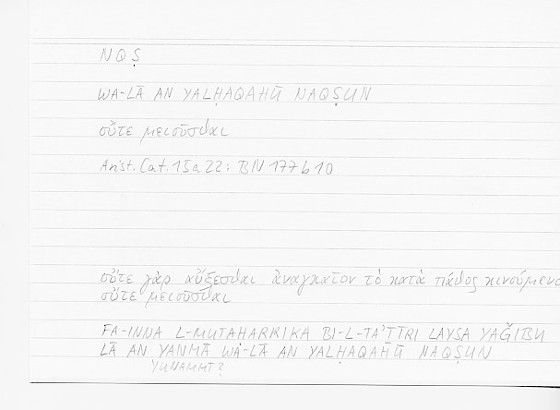 NQṢ
WA-LĀ AN YALḤAQAHŪ NAQṢUN
οὔτε μειοῦσθαι
Arist. Cat. 15a22; BN 177b10
οὔτε γὰρ αὔξεσθαι ἀναγκαῖον τὸ κατὰ πάθος κινούμενο
οὔτε μειοῦσθαι
FA-INNA L-MUTAḤARRIKA BI-L-TAʾṮĪRI LAYSA YAǦIBU
LĀ AN YANMĀ WA-LĀ AN YALḤAQAHŪ NAQṢUN
YUNAMMĪ?